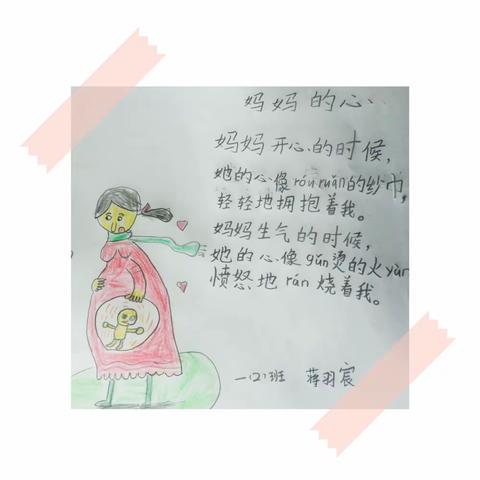 妈妈的心
妈妈开心的时候，
她的心像róu ruǎn的纱巾，
轻轻地拥抱着我。
妈妈生气的时候，
她的心像gǔn烫的火yàn
愤怒地rán烧着我。
一（2）班 蒋羽宸